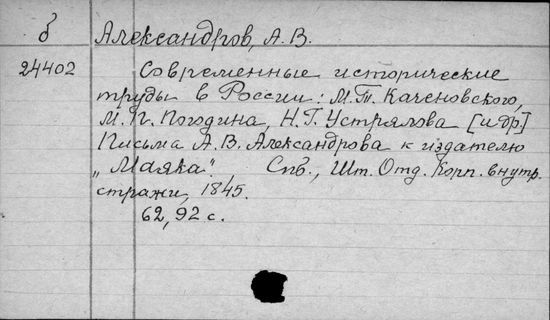 б Александров, А.В.
24402 Современные исторические
труды в России: М.Т. Каченовского,
М.П. Погодина, Н.Г. Устрялова [и др.]
Письма А.В. Александрова к издателю
„Маяка". Спб., Шт. Отд. Корп. внутр.
стражи, 1845.
62, 92 с.